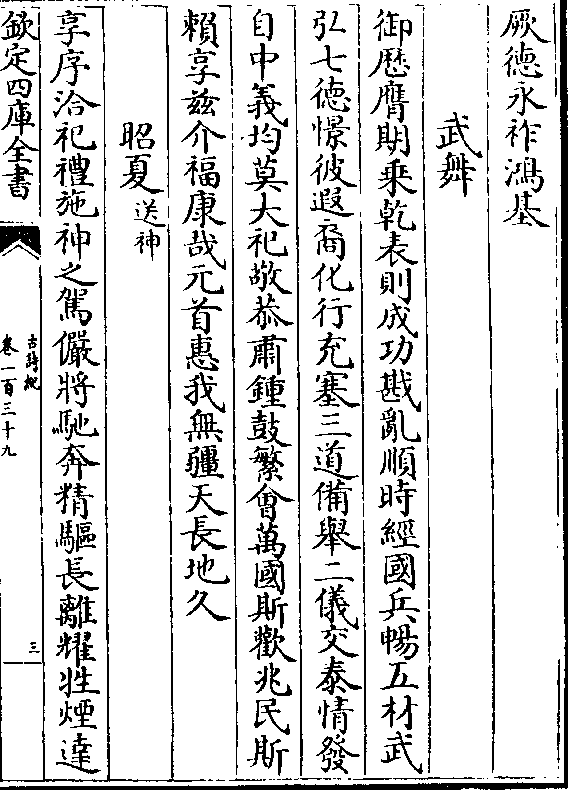 厥德永祚鴻基
武舞
御歴膺期乗乾表則成功戡亂順時經國兵暢五材武
弘七德憬彼遐裔化行充塞三道備舉二儀交泰情發
自中義均莫大祀敬恭肅鍾鼓繁會萬國斯歡兆民斯
賴享兹介福康哉元首惠我無疆天長地久
昭夏送神
享序洽祀禮施神之駕儼將馳奔精驅長離耀牲煙達
欽定四庫全書
古詩紀
卷一百三十九
三